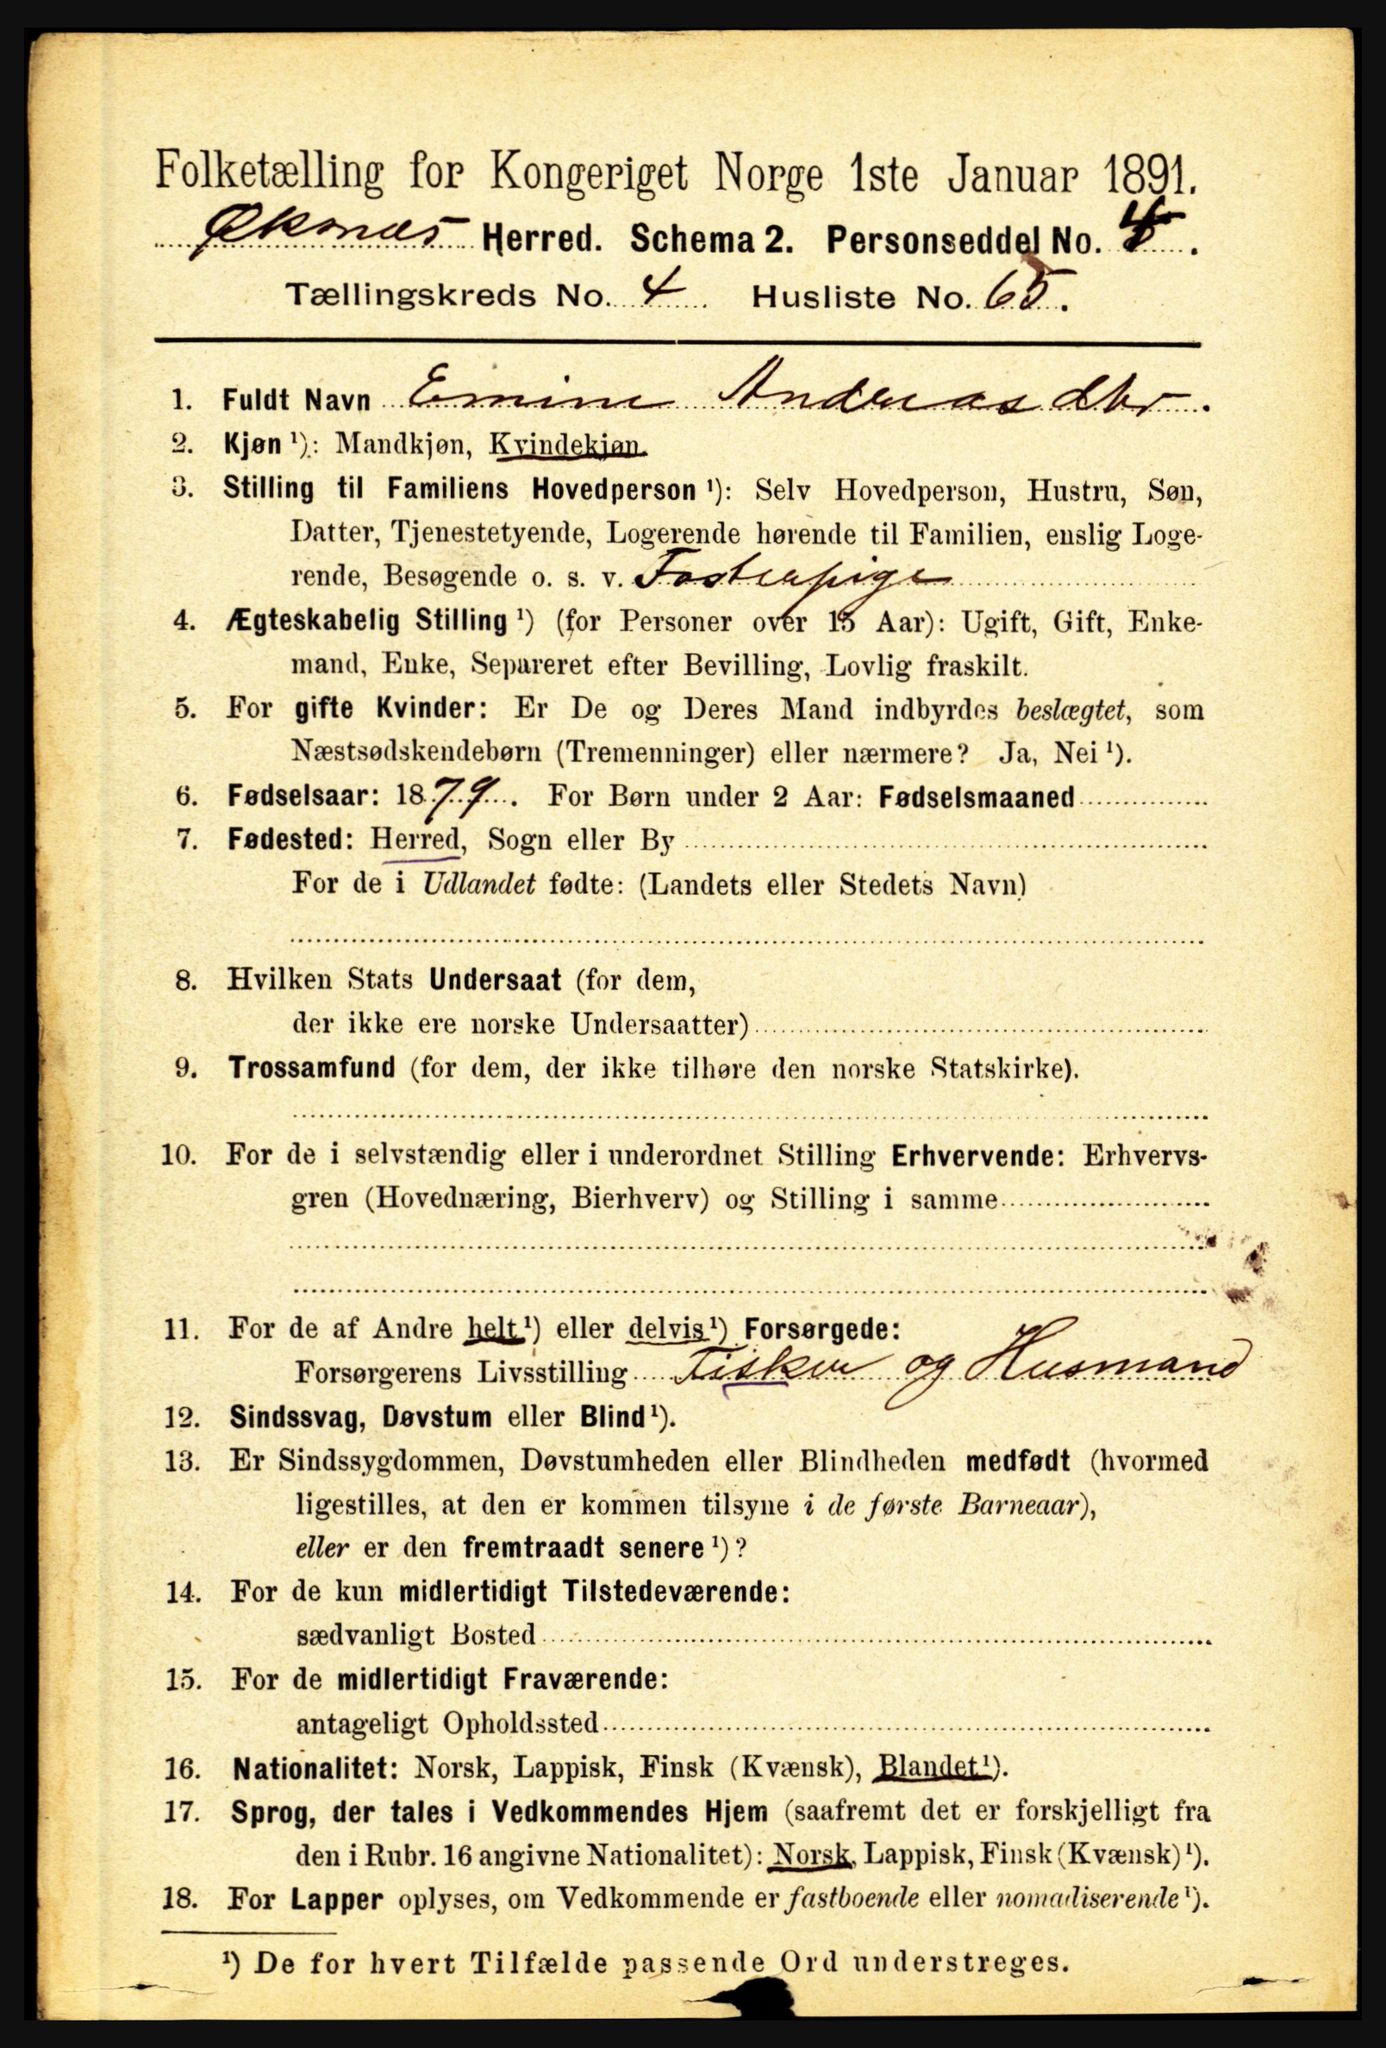 Folketælling for Kongeriget Norge 1ste Januar 1891.
Øksnæs Herred. Schema 2. Personseddel No. 4.
Tællingskreds No. 4 Husliste No. 65.
1. Fuldt Navn Emine Andreasdtr.
2. Kjøn ¹): Mandkjøn, Kvindekjøn.
3. Stilling til Familiens Hovedperson ¹): Selv Hovedperson, Hustru, Søn,
Datter, Tjenestetyende, Logerende hørende til Familien, enslig Loge-
rende, Besøgende o. s. v. Fosterpige
4. Ægteskabelig Stilling ¹) (for Personer over 15 Aar): Ugift, Gift, Enke-
mand, Enke, Separeret efter Bevilling, Lovlig fraskilt.
5. For gifte Kvinder: Er De og Deres Mand indbyrdes beslægtet, som
Næstsødskendebørn (Tremenninger) eller nærmere? Ja, Nei ¹).
6. Fødselsaar: 1879. For Børn under 2 Aar: Fødselsmaaned
7. Fødested: Herred, Sogn eller By
For de i Udlandet fødte: (Landets eller Stedets Navn)
8. Hvilken Stats Undersaat (for dem,
der ikke ere norske Undersaatter)
9. Trossamfund (for dem, der ikke tilhøre den norske Statskirke).
10. For de i selvstændig eller i underordnet Stilling Erhvervende: Erhvervs-
gren (Hovednæring, Bierhverv) og Stilling i samme
11. For de af Andre helt ¹) eller delvis ¹) Forsørgede:
Forsørgerens Livsstilling Fisker og Husmand
12. Sindssvag, Døvstum eller Blind ¹).
13. Er Sindssygdommen, Døvstumheden eller Blindheden medfødt (hvormed
ligestilles, at den er kommen tilsyne i de første Barneaar),
eller er den fremtraadt senere ¹)?
14. For de kun midlertidigt Tilstedeværende:
sædvanligt Bosted
15. For de midlertidigt Fraværende:
antageligt Opholdssted
16. Nationalitet: Norsk, Lappisk, Finsk (Kvænsk), Blandet ¹).
17. Sprog, der tales i Vedkommendes Hjem (saafremt det er forskjelligt fra
den i Rubr. 16 angivne Nationalitet): Norsk, Lappisk, Finsk (Kvænsk) ¹).
18. For Lapper oplyses, om Vedkommende er fastboende eller nomadiserende ¹).
¹) De for hvert Tilfælde passende Ord understreges.